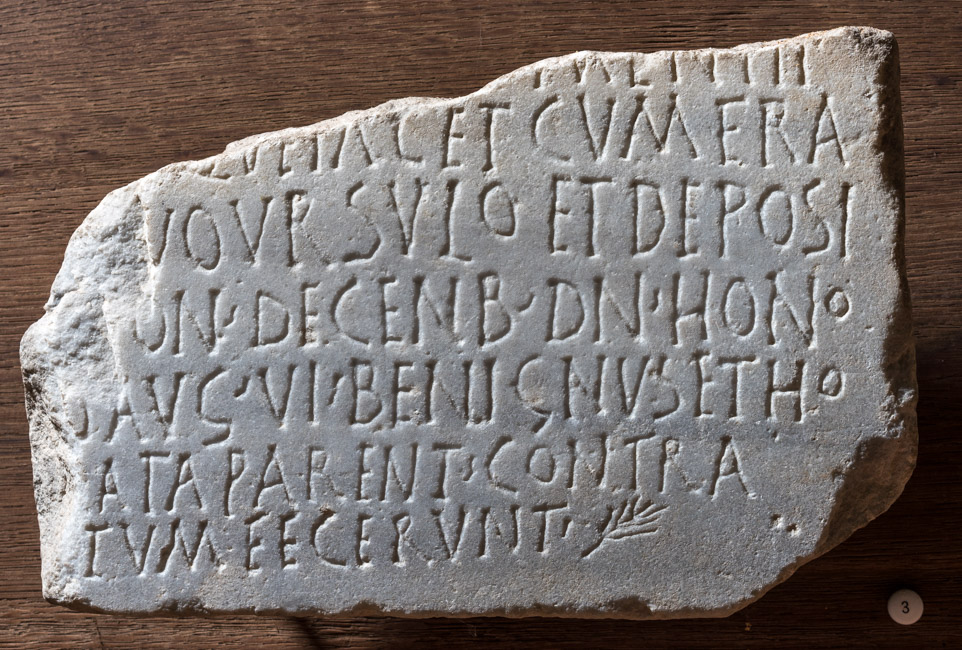 CET CVM ERA
SVLO ET DEPOSI
N· DECENB· DN· HON°
AVG· VI· BENIGNVS ET H°
ATA PARENT· CONTRA
TVM FECERVNT·
3